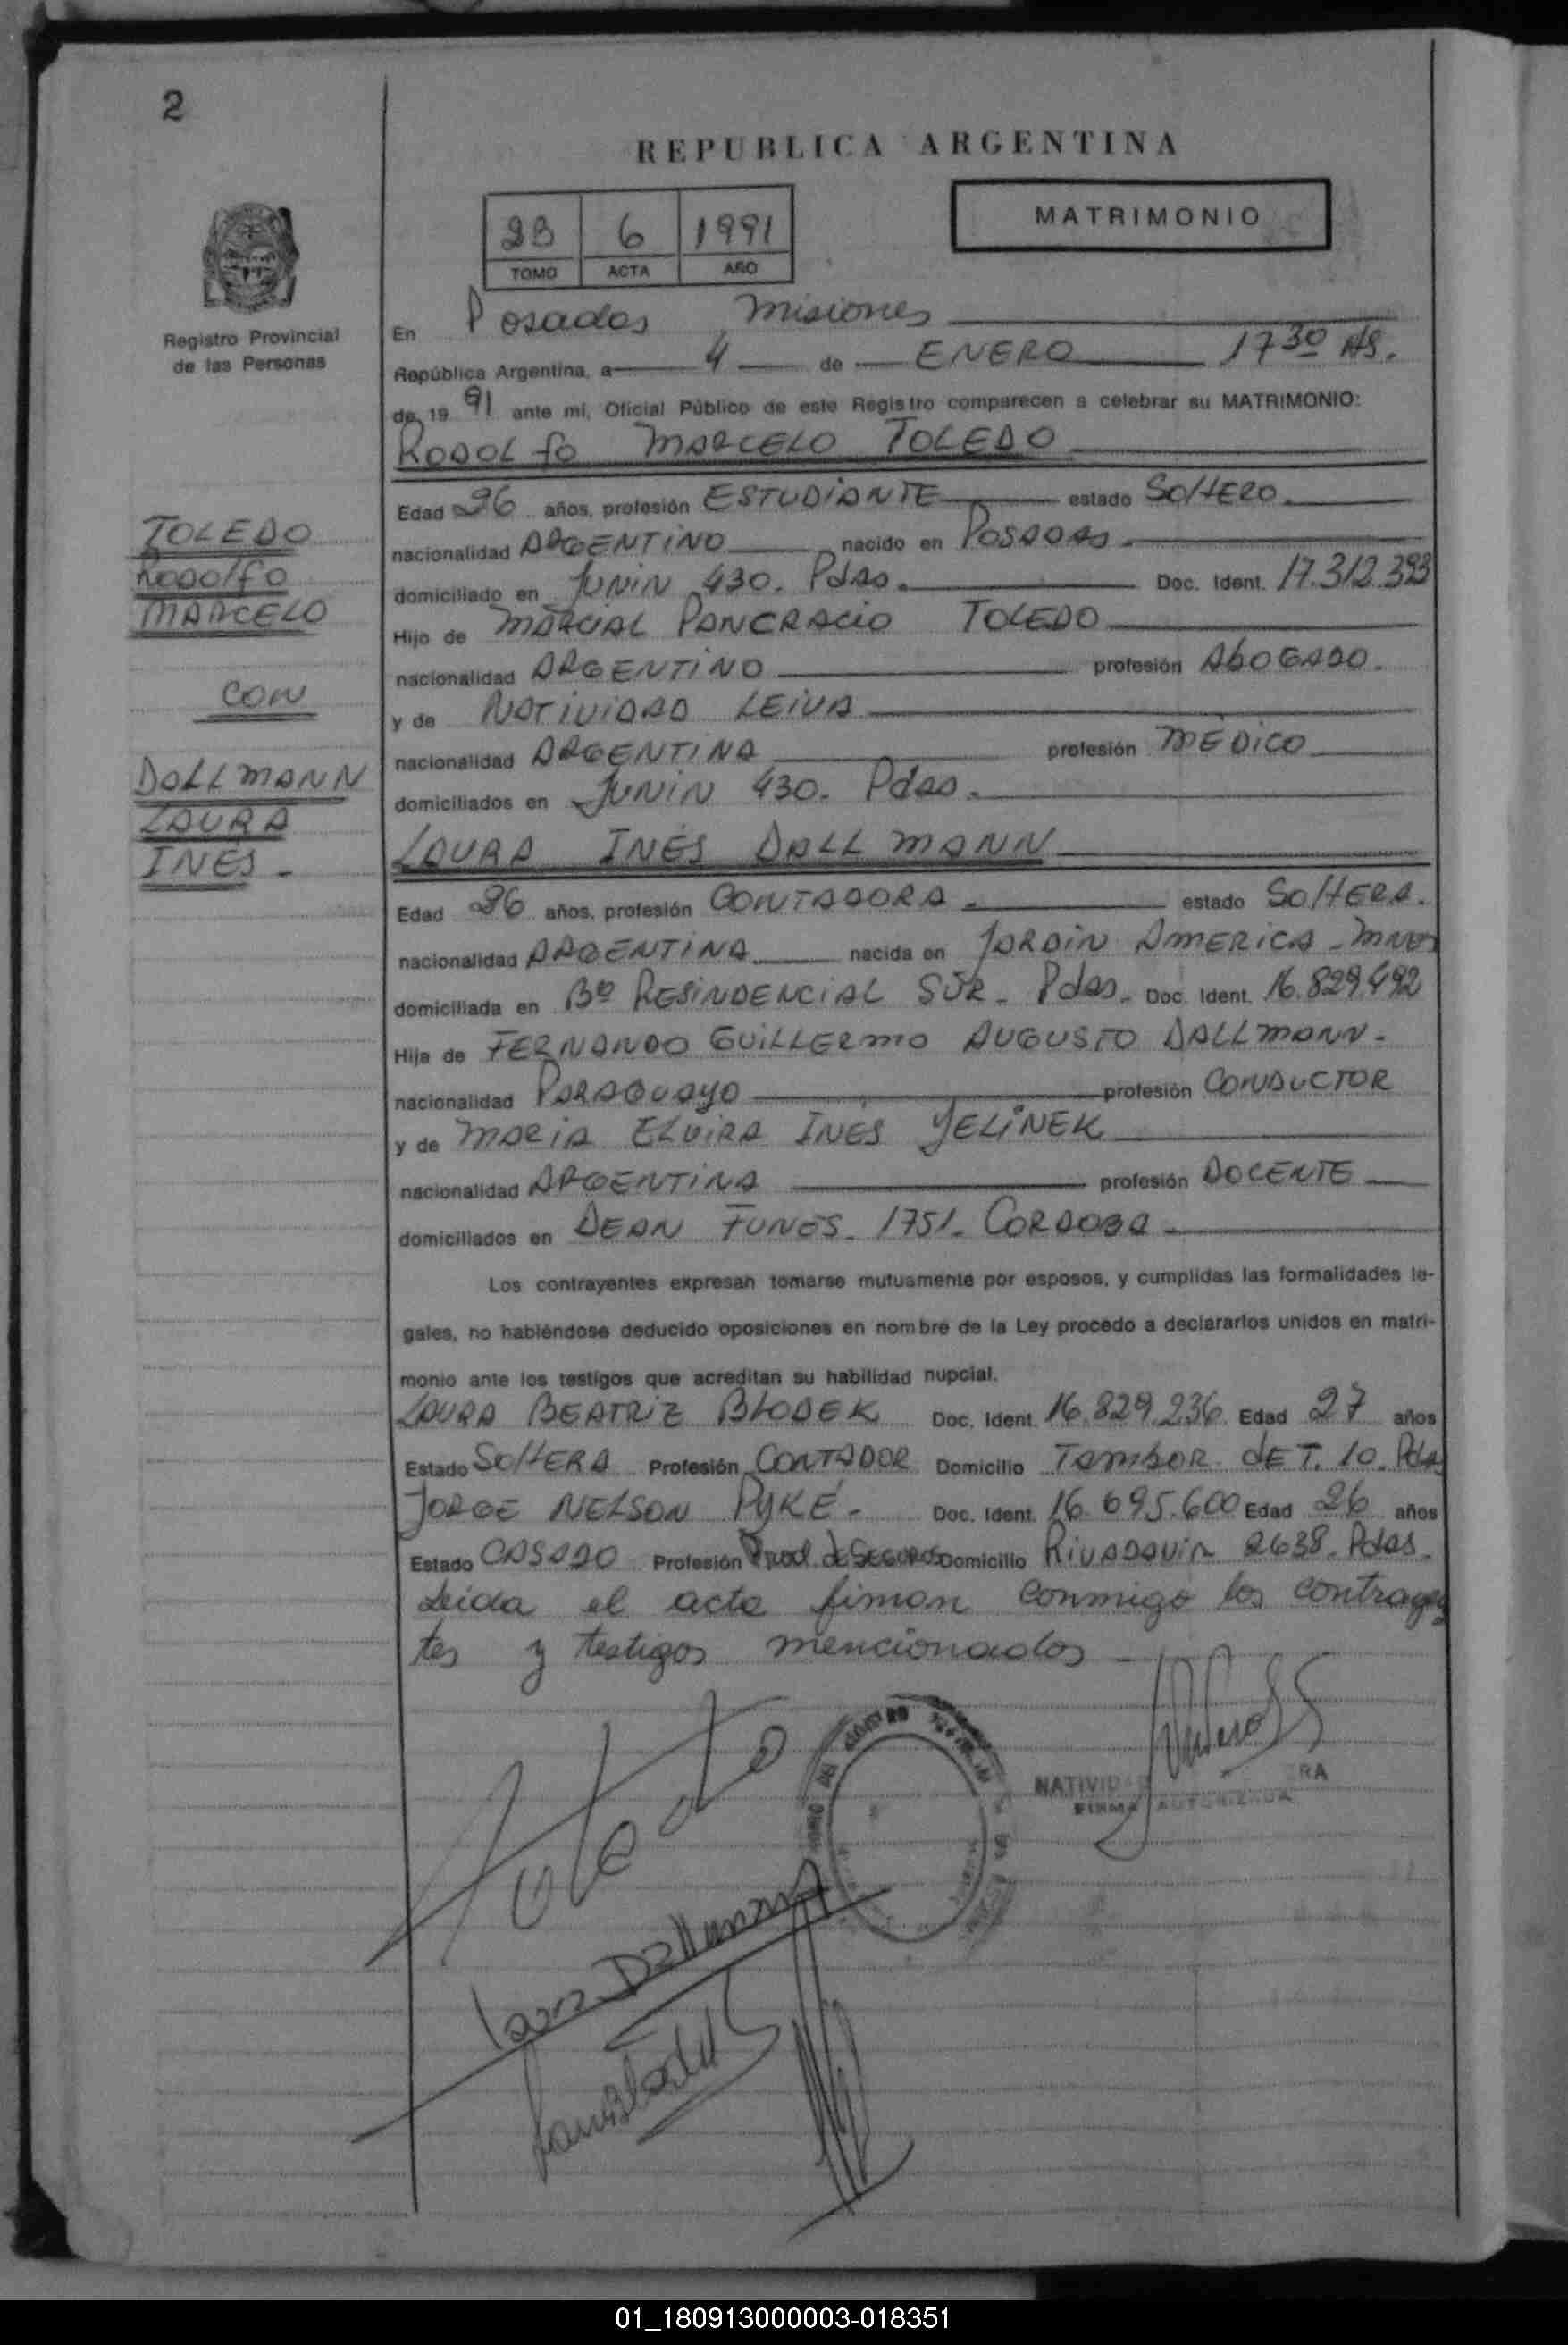 2
REPUBLICA ARGENTINA
2B 6 1991
TOMO ACTA AÑO
MATRIMONIO
Registro Provincial
de las Personas
En Posadas Misiones
República Argentina, a 4 de ENERO 17 30 HS.
de 19 91 ante mí, Oficial Público de este Registro comparecen a celebrar su MATRIMONIO:
RODOLfo MARCELO TOLEDO
Edad 26 años, profesión ESTUDIANTE estado SOLTERO.
TOLEDO
RODOLfO
MARCELO
CON
DALLMANN
LAURA
INÉS -
nacionalidad ARGENTINO nacido en POSADAS.
domiciliado en JUNIN 430. Pdas. Doc. Ident. 17.312.393
Hijo de MARCIAL PANCRACIO TOLEDO
nacionalidad ARGENTINO profesión AbOGADO.
y de NATIVIDAD LEIVA
nacionalidad ARGENTINA profesión MÉDICO
domiciliados en JUNIN 430. Pdas.
LAURA INÉS DALLMANN
Edad 26 años, profesión CONTADORA. estado SOLTERA.
nacionalidad ARGENTINA nacida en JARDIN AMERICA - MNES
domiciliada en Bº RESINDENCIAL SUR - Pdas. Doc. Ident. 16.829.492
Hija de FERNANDO GUILLERMO AUGUSTO DALLMANN -
nacionalidad PARAGUAYO profesión CONDUCTOR
y de MARIA ELVIRA INÉS YELINEK
nacionalidad ARGENTINA profesión DOCENTE
domiciliados en DEAN FUNES. 1751- CORDOBA
Los contrayentes expresan tomarse mutuamente por esposos, y cumplidas las formalidades le-
gales, no habiéndose deducido oposiciones en nombre de la Ley procedo a declararlos unidos en matri-
monio ante los testigos que acreditan su habilidad nupcial.
LAURA BEATRIZ BLODEK Doc. Ident. 16.829.236 Edad 27 años
Estado SOLTERA Profesión CONTADOR Domicilio TAMBOR dE T. 10. Pdas
JORGE NELSON PYKÉ - Doc. Ident. 16.695.600 Edad 26 años
Estado CASADO Profesión Prod. dE SEGUROS Domicilio RIVADAVIA 2638. Pdas.
Leida el acta firman conmigo los contrayen
tes y testigos mencionados
Toledo
NATIVID RA
FIRMA AUTORIZADA
Laura Dallmann
01_180913000003-018351